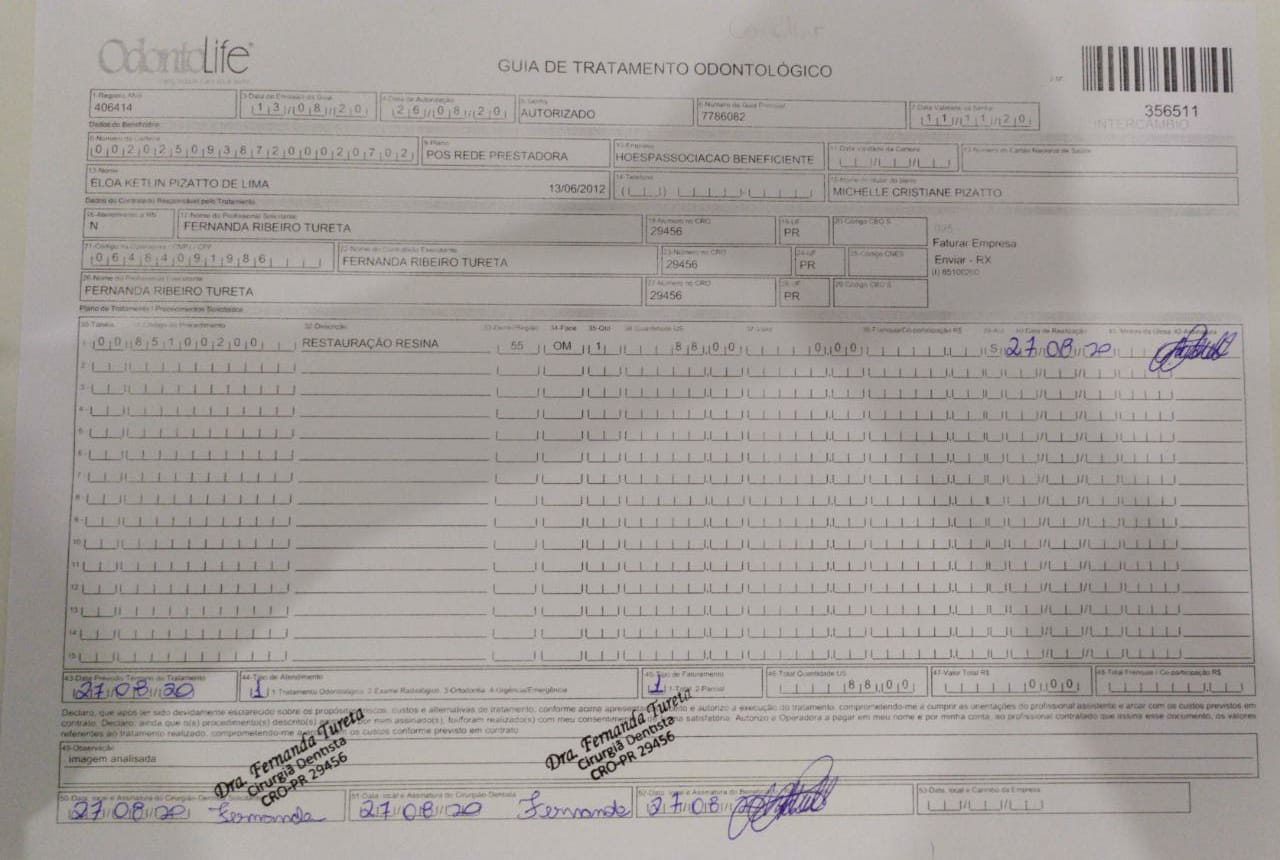 OdontoLife
GUIA DE TRATAMENTO ODONTOLÓGICO
356511
INTERCÂMBIO
1-Registro ANS
406414
3-Data de Emissão da Guia
13/08/20
4-Data de Autorização
26/08/20
5-Senha
AUTORIZADO
6-Número da Guia Principal
7786082
7-Data Validade da Senha
11/11/20
Dados do Beneficiário
8-Número da Carteira
00202509387200020702
9-Plano
POS REDE PRESTADORA
10-Empresa
HOESPASSOCIACAO BENEFICIENTE
11-Data validade da Carteira
12-Número do Cartão Nacional de Saúde
13-Nome
ELOA KETLIN PIZATTO DE LIMA
13/06/2012
14-Telefone
15-Nome do titular do plano
MICHELLE CRISTIANE PIZATTO
Dados do Contratado Responsável pelo Tratamento
16-Atendimento a RN
N
17-Nome do Profissional Solicitante
FERNANDA RIBEIRO TURETA
18-Número no CRO
29456
19-UF
PR
20-Código CBO S
025-
Faturar Empresa
Enviar - RX
(I) 85100200
21-Código na Operadora / CNPJ / CPF
06484091986
22-Nome do Contratado Executante
FERNANDA RIBEIRO TURETA
23-Número no CRO
29456
24-UF
PR
25-Código CNES
26-Nome do Profissional Executante
FERNANDA RIBEIRO TURETA
27-Número no CRO
29456
28-UF
PR
29-Código CBO S
Plano de Tratamento / Procedimentos Solicitados
30-Tabela 31-Código do Procedimento 32-Descrição 33-Dente/Região 34-Face 35-Qtd 36-Quantidade US 37-Valor 38-Franquia/Co-participação R$ 39-Aut 40-Data de Realização 41-Motivo da Glosa 42-Assinatura
1- 00 85100200 RESTAURAÇÃO RESINA 55 OM 1 88,00 0,00 S 27/08/20
2-
3-
4-
5-
6-
7-
8-
9-
10
11
12
13
14
15
43-Data Previsão Término do Tratamento
27/08/20
44-Tipo de Atendimento
1 1-Tratamento Odontológico 2-Exame Radiológico 3-Ortodontia 4-Urgência/Emergência
45-Tipo de Faturamento
1 1-Total 2-Parcial
46-Total Quantidade US
88,00
47-Valor Total R$
0,00
48-Total Franquia / Co-participação R$
Declaro, que após ter sido devidamente esclarecido sobre os propósitos, riscos, custos e alternativas do tratamento, conforme acima apresentados, e autorizo a execução do tratamento, comprometendo-me a cumprir as orientações do profissional assistente e arcar com os custos previstos em
contrato. Declaro, ainda que o(s) procedimento(s) descrito(s) por mim assinado(s), foi/foram realizado(s) com meu consentimento satisfatória. Autorizo a Operadora a pagar em meu nome e por minha conta, ao profissional contratado que assina esse documento, os valores
referentes ao tratamento realizado, comprometendo-me os custos conforme previsto em contrato.
49-Observação
imagem analisada
Dra. Fernanda Tureta
Cirurgiã Dentista
CRO-PR 29456
Dra. Fernanda Tureta
Cirurgiã Dentista
CRO-PR 29456
50-Data, local e Assinatura do Cirurgião-Dentista
27/08/20 Fernanda
51-Data, local e Assinatura do Cirurgião-Dentista
27/08/20 Fernanda
52-Data, local e Assinatura do
27/08/
53-Data, local e Carimbo da Empresa